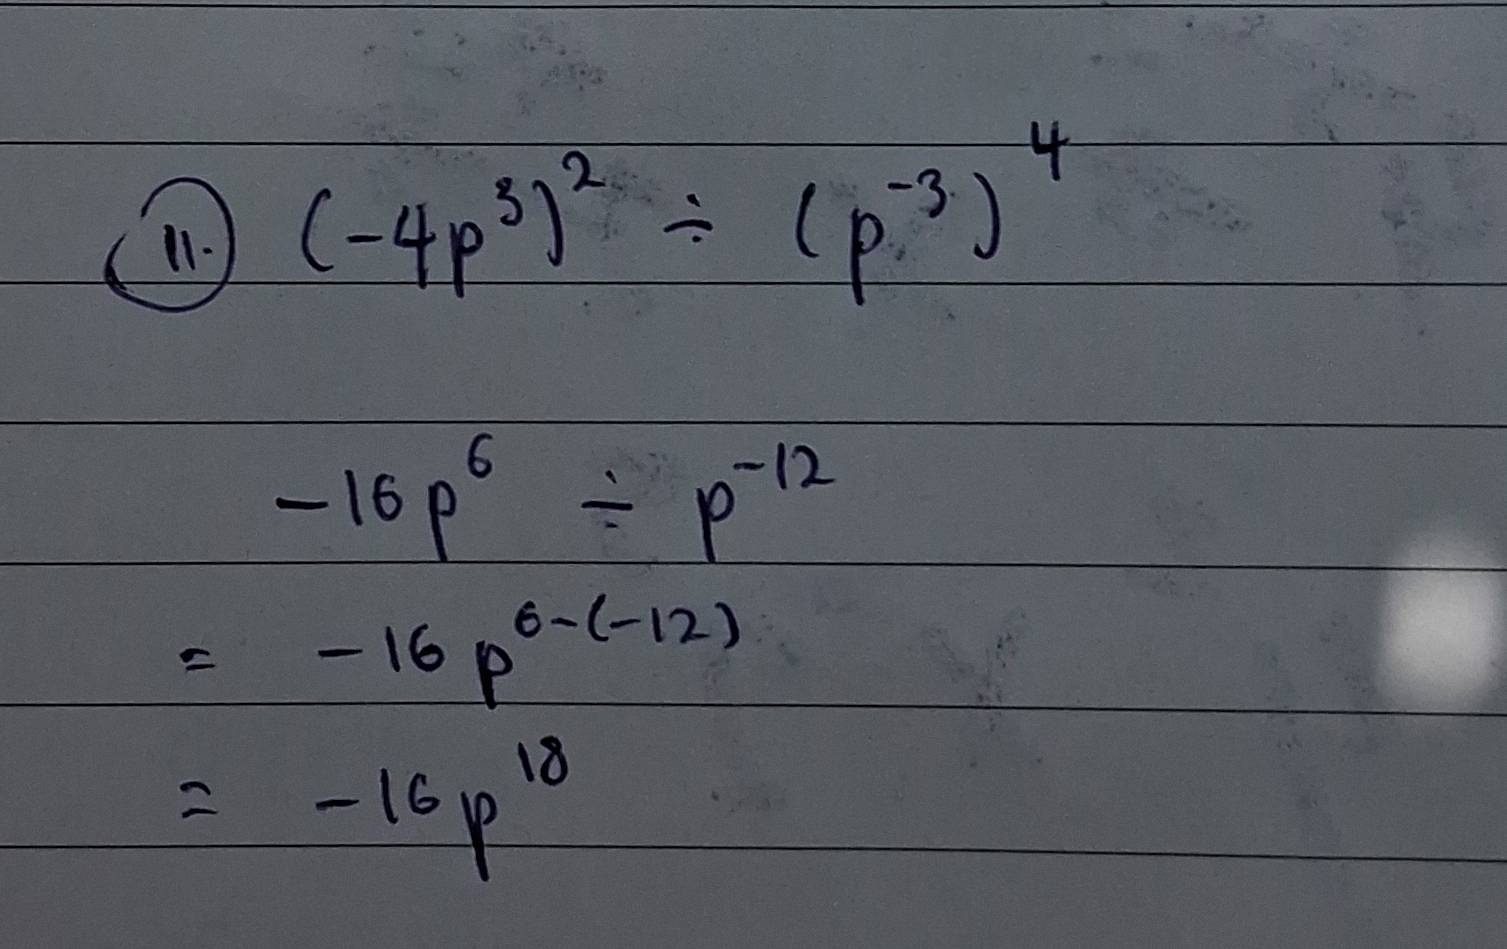 11. (-4p³)² ÷ (p⁻³)⁴
-16p⁶ ÷ p⁻¹²
= -16p⁶⁻⁽⁻¹²⁾
= -16p¹⁸